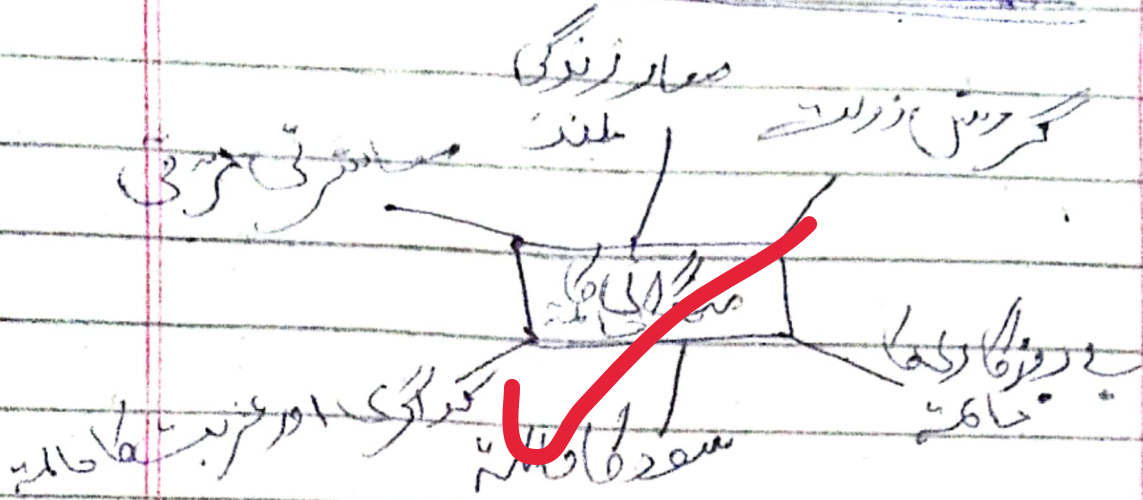 معیار زندگی
بلند
گردش دولت
معاشرتی ترقی
مہنگائی کا خاتمہ
بے روزگاری کا
خاتمہ
گداگری اور غربت کا خاتمہ
سود کا خاتمہ